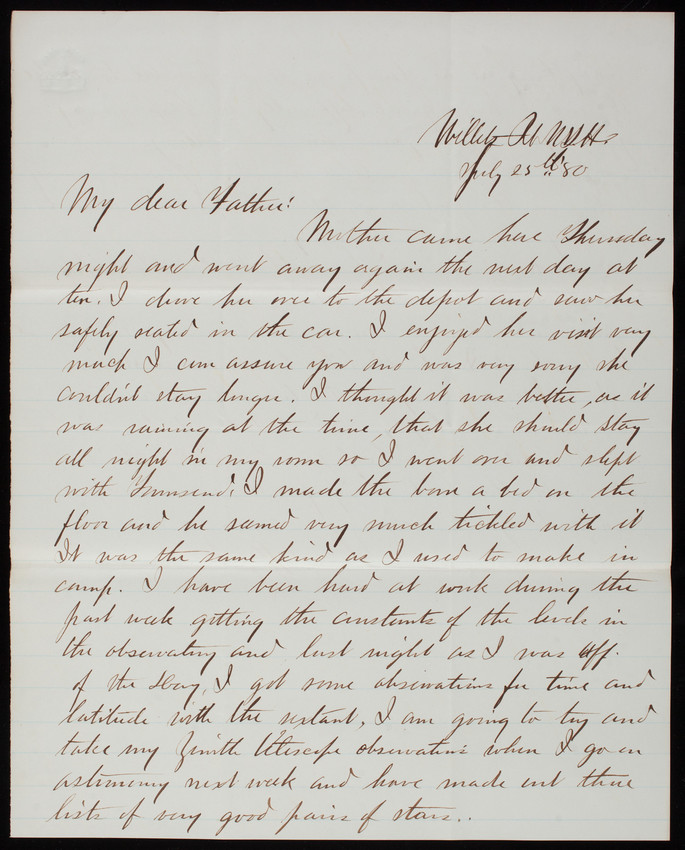 Willets Pt NYH
July 25th '80
My dear Father:
Mother came here Thursday
night and went away again the next day at
ten. I drove her over to the depot and saw her
safely seated in the car. I enjoyed her visit very
much I can assure you and was very sorry she
couldn't stay longer. I thought it was better, as it
was raining at the time, that she should stay
all night in my room so I went over and slept
with Townsend. I made the bon a bed on the
floor and he seemed very much tickled with it
It was the same kind as I used to make in
camp. I have been hard at work during the
past week getting the constants of the levels in
the observatory and last night as I was off.
of the Day, I got some observations for time and
latitude with the sextant, I am going to try and
take my Zenith telescope observations when I go on
astronomy next week and have made out three
lists of very good pairs of stars.